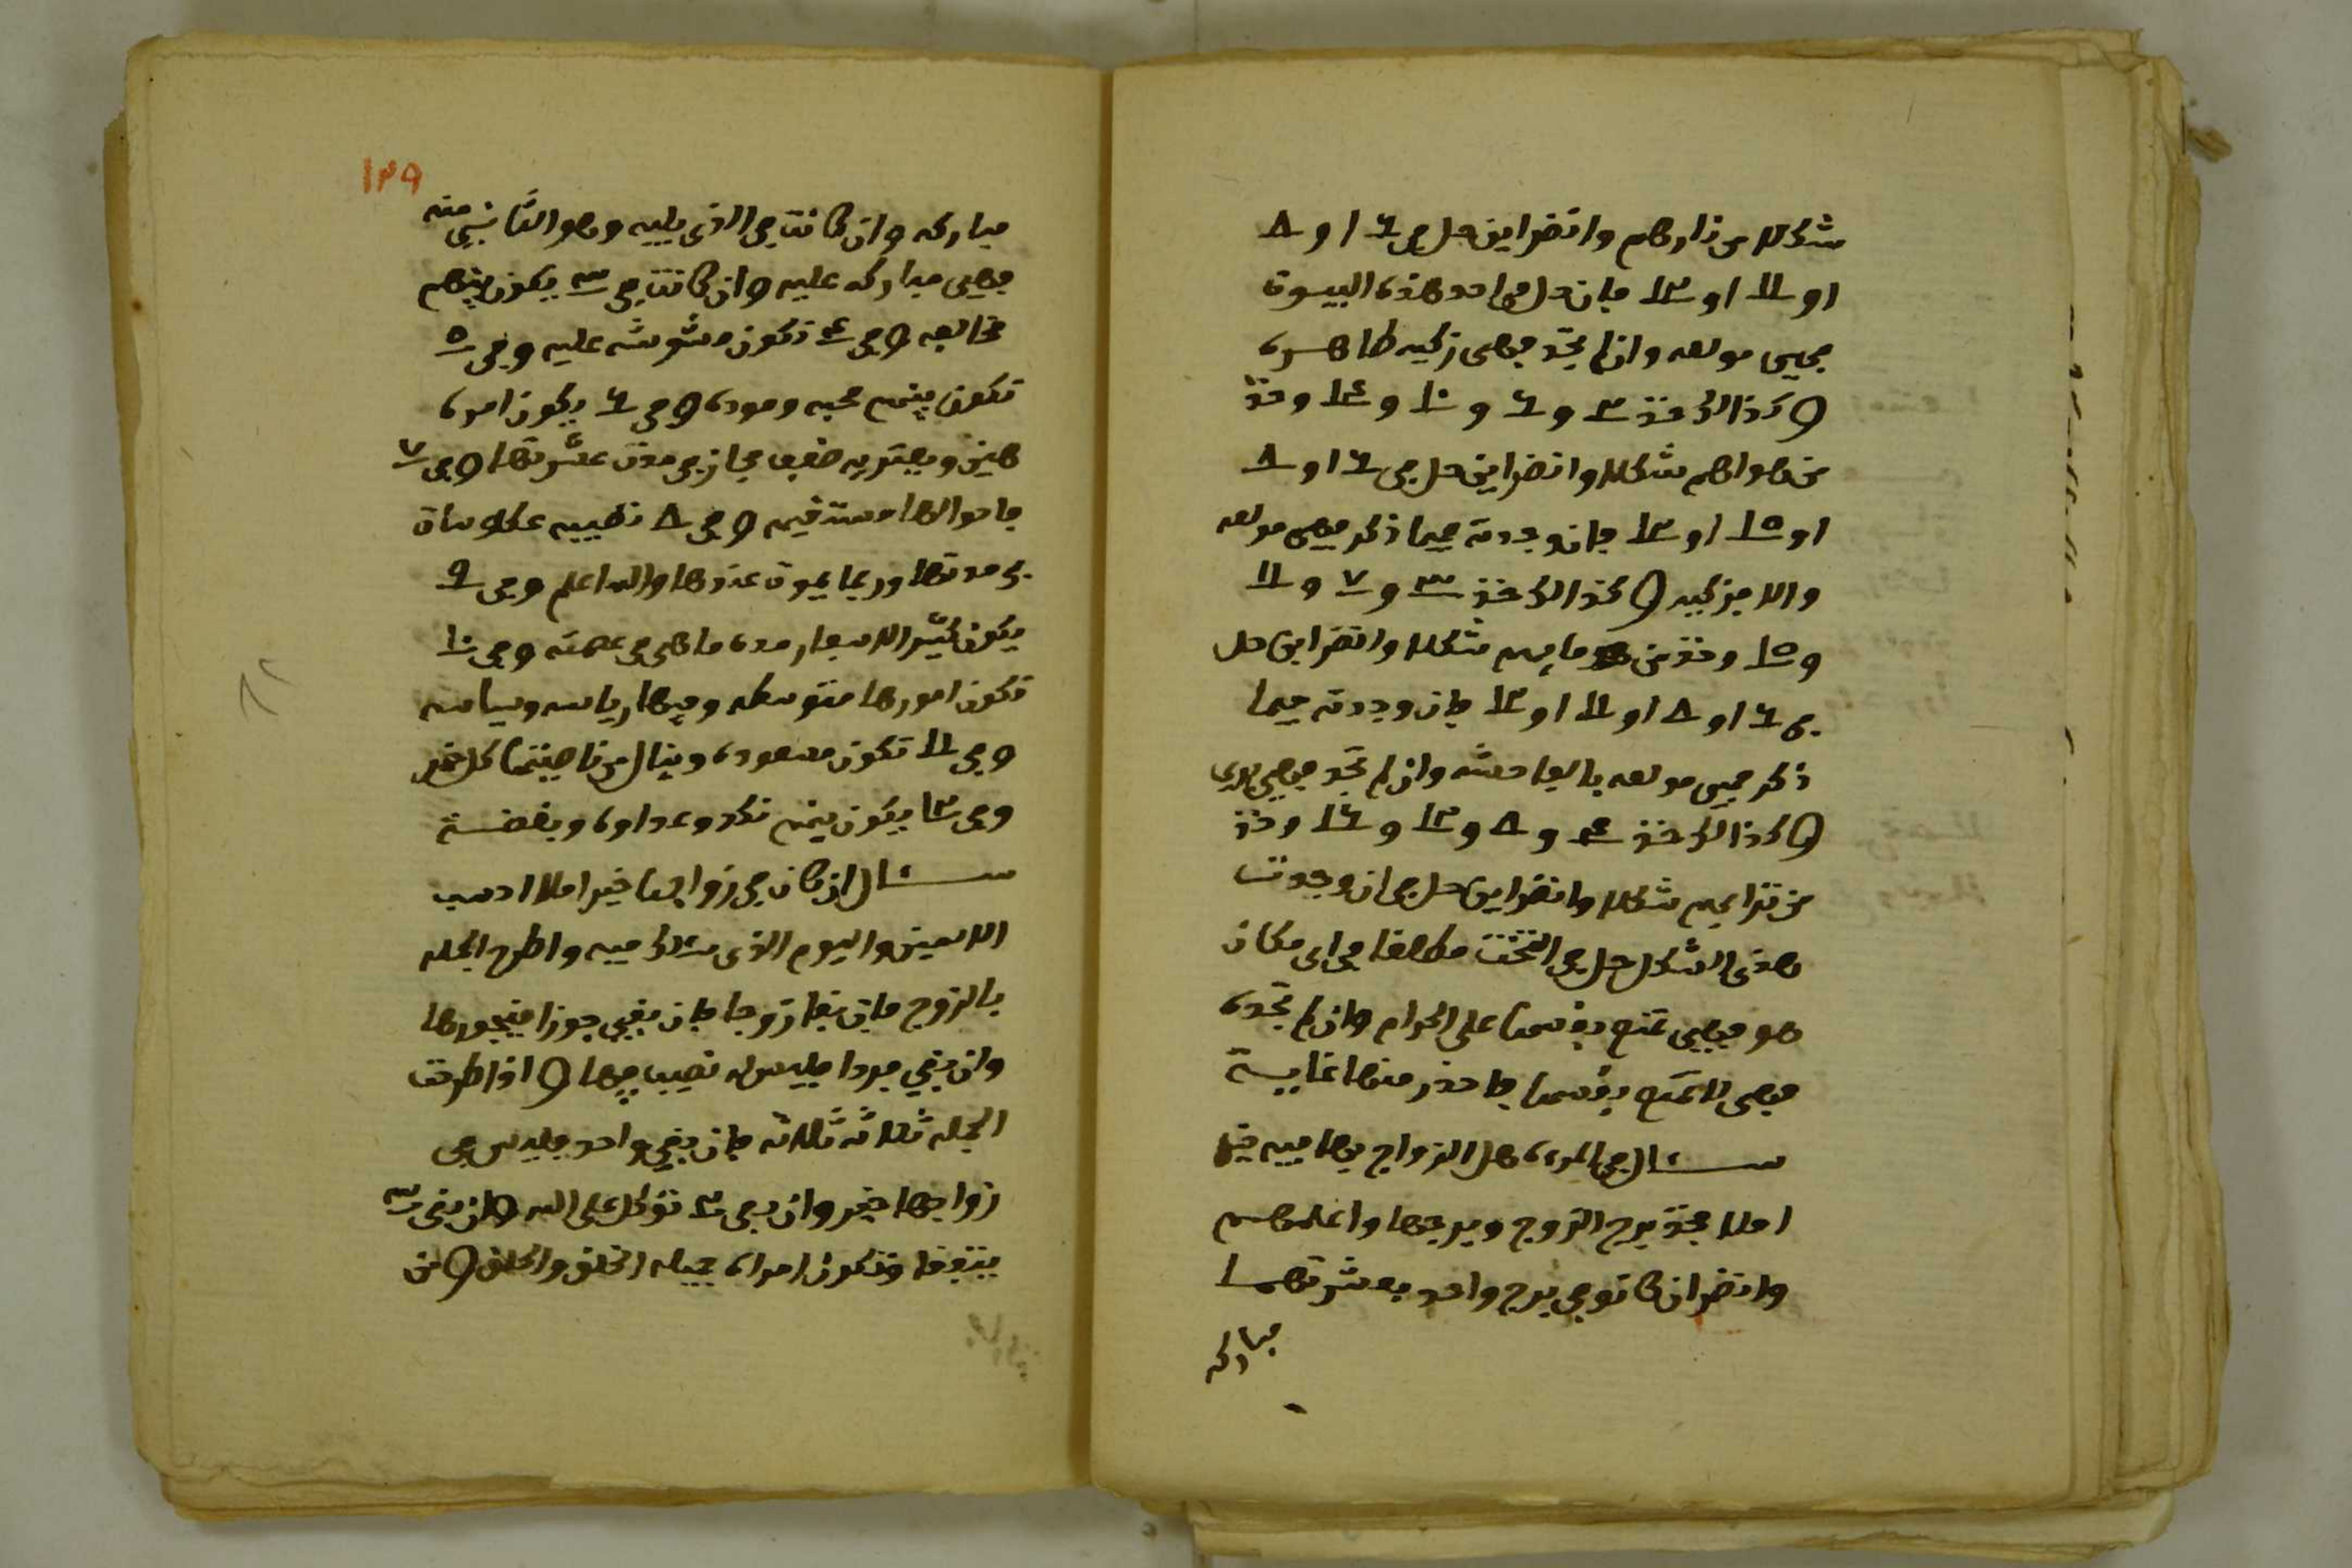 شكلا من نارهم وانضر اين حل في ٦ او ٨
او ١١ او ١٢ فان حل في احد هذه البيوت
فهي مولعه وان لم تجد فهي زكيه طاهره
وكذالك خذ ٢ و ٦ و ١٠ و ١٤ وخذ
من هواهم شكلا وانضر اين حل في ٦ او ٨
او ١٥ او ١٢ فان وجدته فيما ذكر فهي مولعه
والا فزكيه وكذالك خذ ٣ و ٧ و ١١
و ١٥ وخذ من مايهم شكلا وانضر اين حل
في ٦ او ٨ او ١١ او ١٢ فان وجدته فيما
ذكر فهي مولعه بالفاحشه وان لم تجد فهي بريه
وكذالك خذ ٤ و ٨ و ١٢ و ١٦ وخذ
من ترابهم شكلا وانضر اين حل فان وجدت
هذه الشكل حل في التخت مطلقا في اي مكان
هو فهي تمتع بفسها على الحرام وان لم تجده
فهي لا تمتع بفسها فاحذر منها غاية
سؤال في المره هل الزواج بها فيه خير
املا فخذ برج الزوج وبرجها واعلمهم
وانضر ان كانو في برج واحد فعشرتهما
مباركه
١٤٩
مباركه وان كانت في الذي يليه وهو الثاني منه
فهي مباركه عليه وان كانت في ٣ يكون بينهم
مخالفه وفي ٤ تكون مشوشه عليه وفي ٥
تكون بينهم محبه وموده وفي ٦ يكون امره
هين ويعتريه ضعف مجاز في مدت عشرتها وفي ٧
فاحوالها مستقيمه وفي ٨ تصيبه عكوسات
في مدتها وربما يموت عندها والله اعلم وفي ٩
يكون كثير الاسفار مده ما هي في عصمته وفي ١٠
تكون امورها متوسطه وفيها رياسه وسياسه
وفي ١١ تكون مسعوده وينال من ناصيتها كل خير
وفي ١٢ يكون بينهم نكد وعداوه وبغضة
سؤال ان كان في زواجها خير املا احسب
الاسمين واليوم الذي سالك فيه واطرح الجمله
بالزوج فان بقا زوجا فان بقي جوزا فيتجوزها
وان بقي فردا فليس له نصيب فيها واذا طرحت
الجمله ثلاثه ثلاثه فان بقي واحد فليس في
زواجها خير وان بقي ٢ توكل على الله وان بقي ٣
يتزوجها وتكون امراه جميله الخلق والخلق ومن